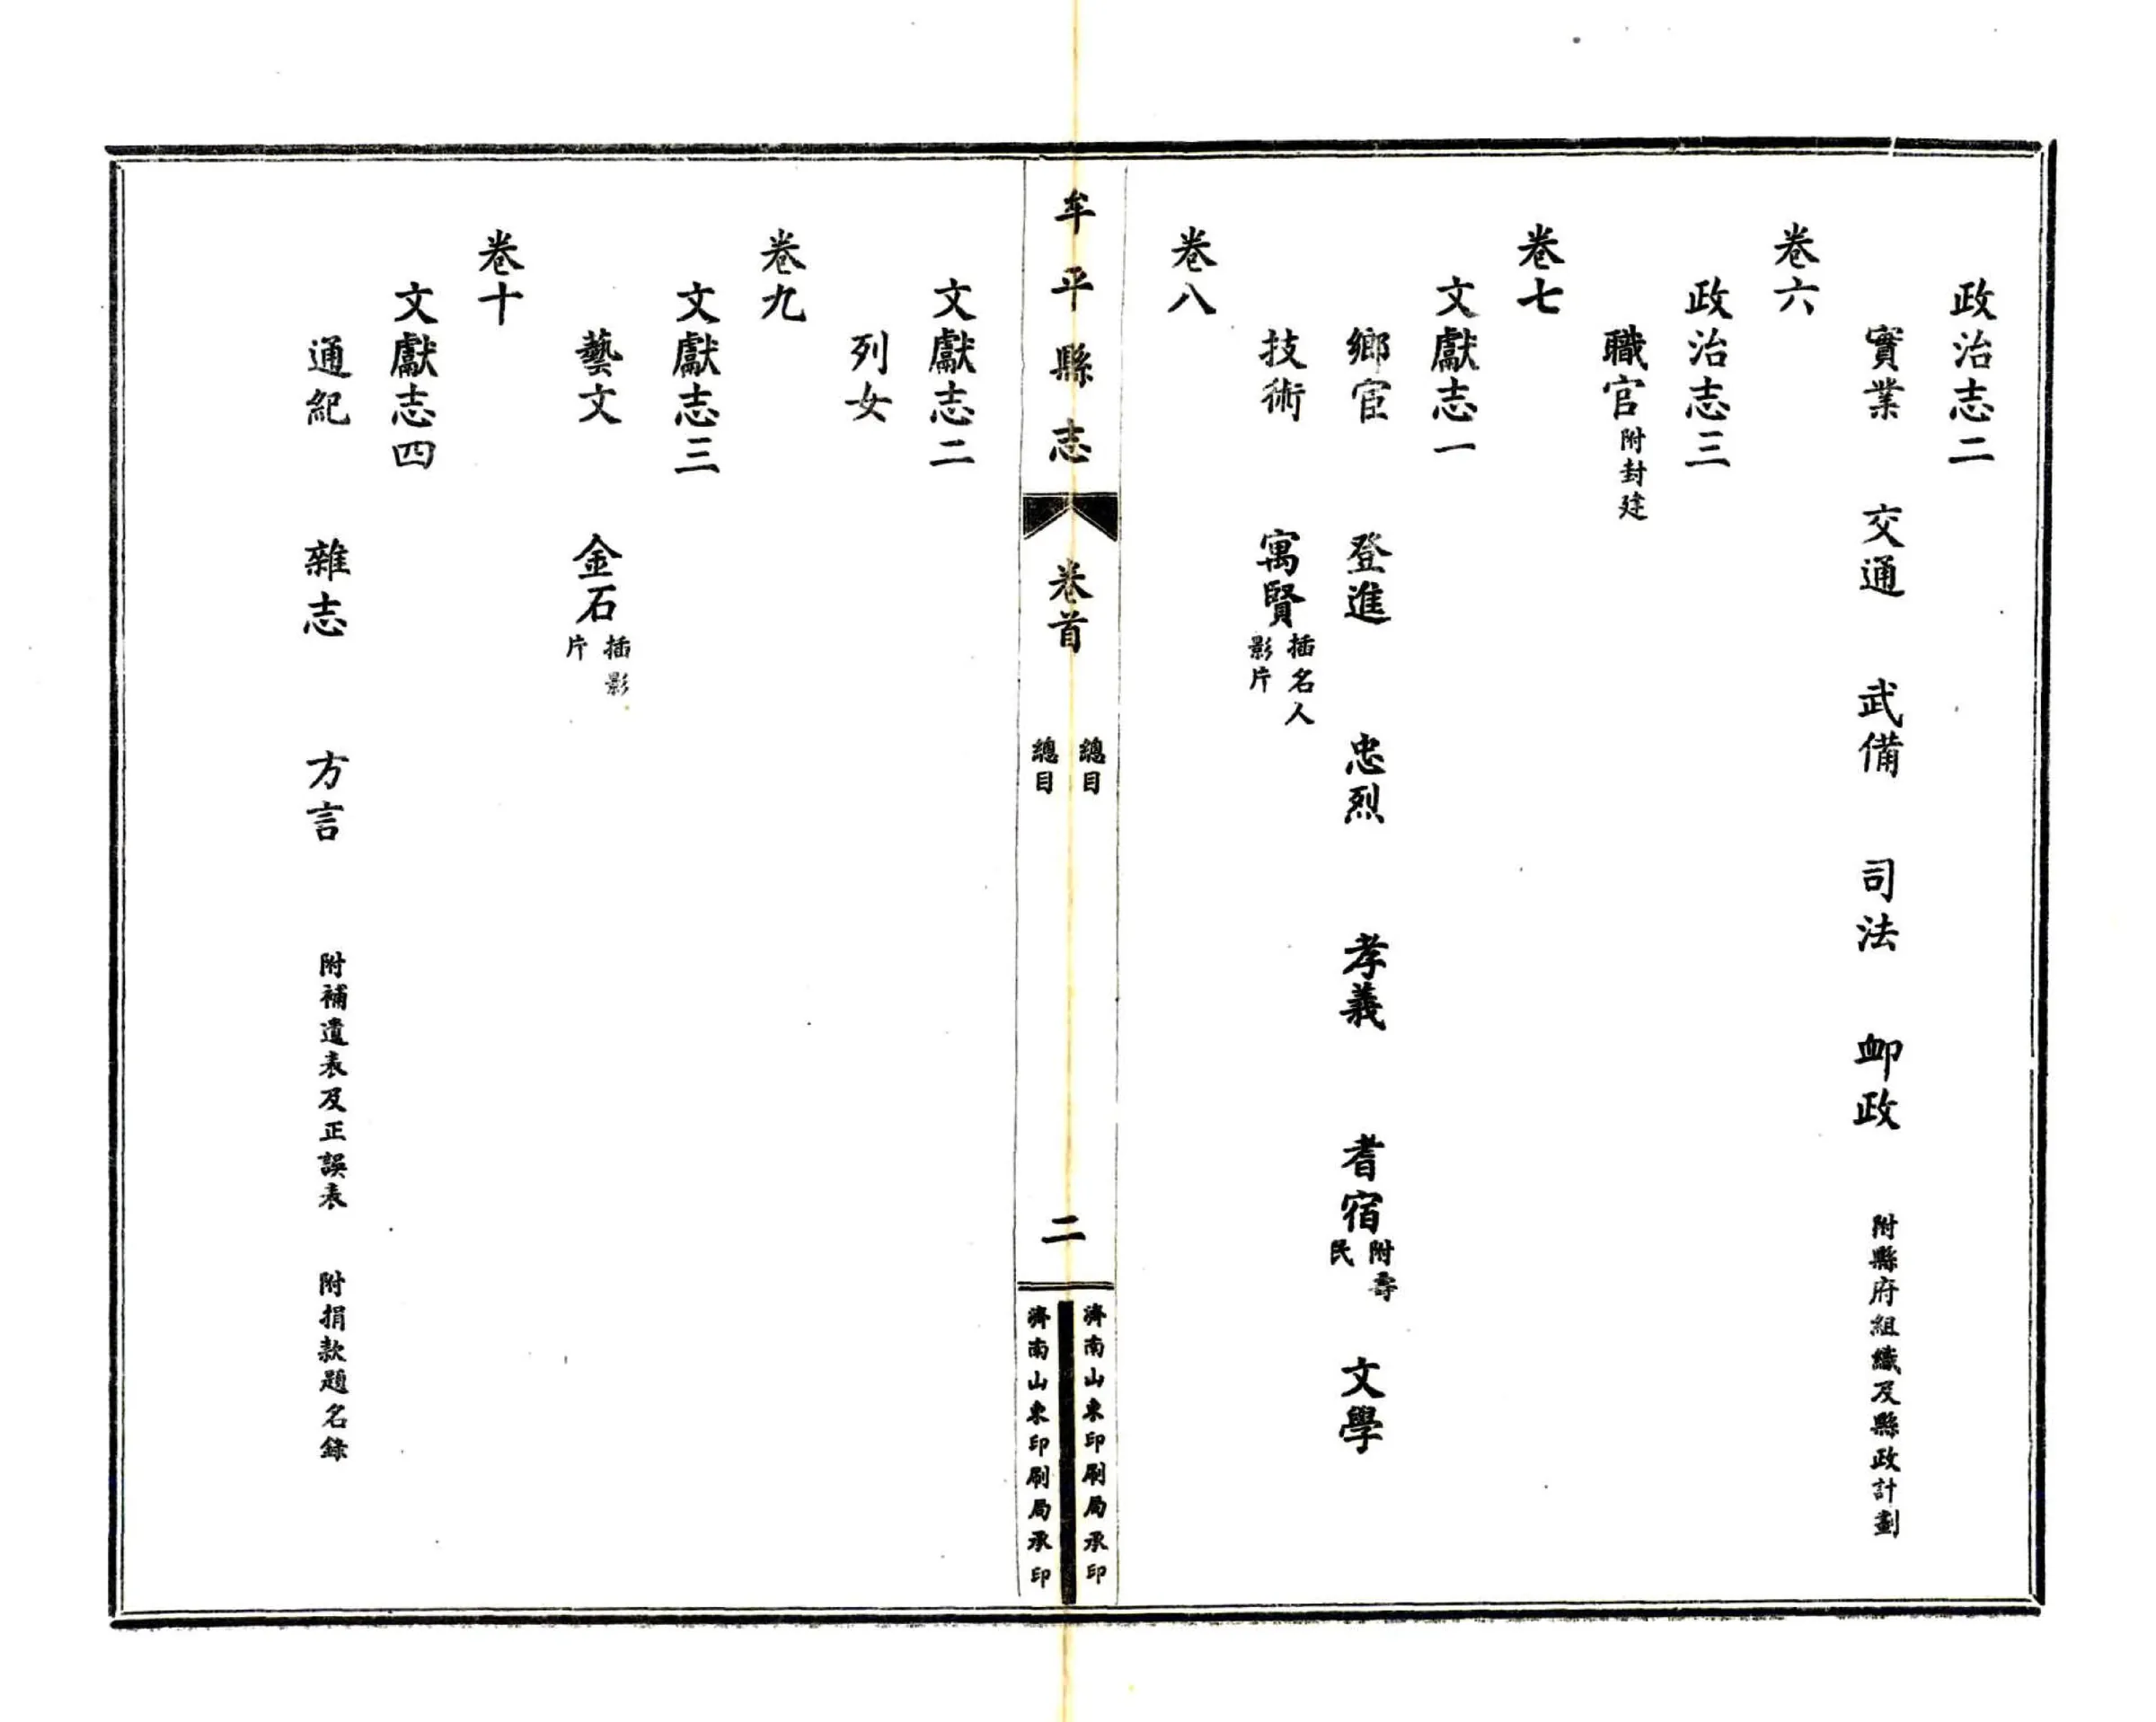 政治志二
實業　交通　武備　司法　卹政　附縣府組織及縣政計劃
卷六
政治志三
職官附封建
卷七
文獻志一
鄉宦　登進　忠烈　孝義　耆宿附壽民　文學
技術　寓賢插名人影片
卷八
牟平縣志　卷首　總目　總目　二
濟南山東印刷局承印
濟南山東印刷局承印
文獻志二
列女
卷九
文獻志三
藝文　金石插影片
卷十
文獻志四
通紀　雜志　方言　附補遺表及正誤表　附捐款題名錄